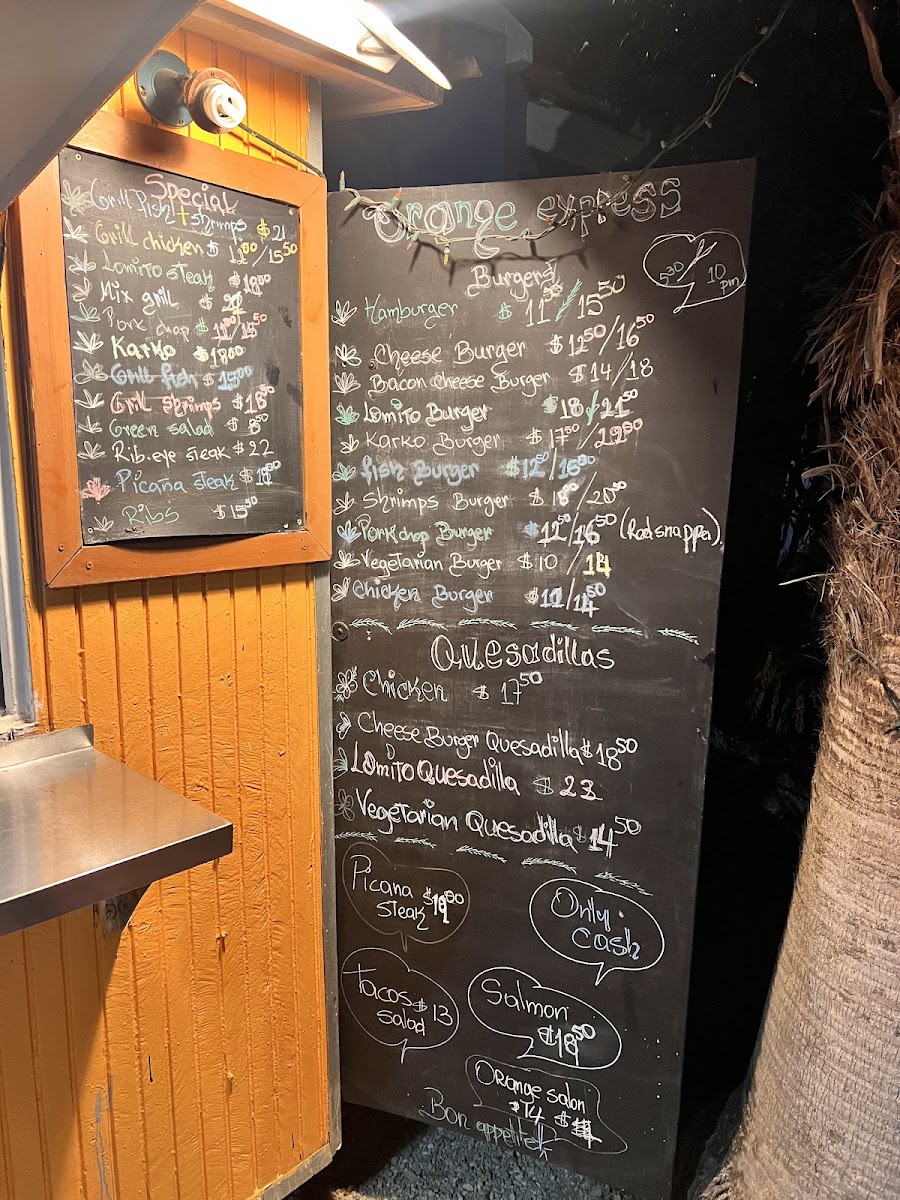 Special
Grill Fish + shrimps $21
Grill chicken $ 12⁵⁰/15⁵⁰
Lomito steak $19⁰⁰
Mix grill $
Pork chop $ 11⁵⁰/15⁵⁰
Karko $18⁰⁰
Grill fish $15⁰⁰
Grill shrimps $18⁵⁰
Green salad $ 8⁵⁰
Rib.eye steak $22
Picana steak $18⁵⁰
Ribs $15⁵⁰
Orange express
5³⁰/10 pm
Burgers
Hamburger $ 11⁵⁰/15⁵⁰
Cheese Burger $12⁵⁰/16⁵⁰
Bacon cheese Burger $14/18
Lomito Burger $18/21⁵⁰
Karko Burger $17⁵⁰/22⁵⁰
fish Burger $12⁵⁰/16⁵⁰
Shrimps Burger $18⁰⁰/20⁵⁰
Porkchop Burger $12⁵⁰/16⁵⁰ (Redsnapper)
Vegetarian Burger $10/14
Chicken Burger $11/14⁵⁰
Quesadillas
Chicken $ 17⁵⁰
Cheese Burger Quesadilla $18⁵⁰
Lomito Quesadilla $23
Vegetarian Quesadilla $14⁵⁰
Picana
steak
Only.
cash
Tacos $13
salad
Salmon
$18⁵⁰
Orange salon
$14
Bon appetite